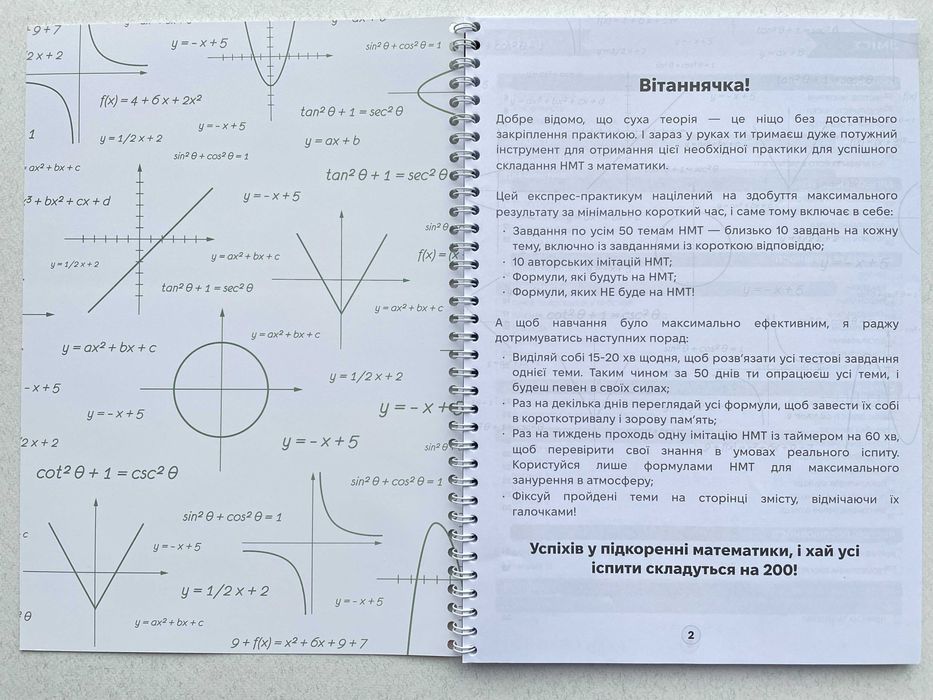 -9+7
y = - x + 5
sin² θ + cos² θ = 1
2 x + 2
f(x) = 4 + 6 x + 2x²
tan² θ + 1 = sec² θ
1
y = 1/2 x + 2
y = - x + 5
y = ax + b
sin² θ + cos² θ = 1
ax² + bx + c
tan² θ + 1 = sec² θ
x³ + bx² + cx + d
y = - x + 5
sin² θ
y = 1/2 x + 2
y = ax² + bx + c
f(x) = (x
tan² θ + 1 = sec² θ
y = ax² + bx + c
y = ax² + bx + c
y = ax² + bx + c
y = 1/2 x + 2
- x + 5
y = - x + 5
y = - x +
2 x + 2
y = - x + 5
sin² θ
cot² θ + 1 = csc² θ
sin² θ + cos² θ = 1
sin² θ + cos² θ = 1
c
y = - x + 5
y = 1/2 x + 2
y = - x + 5
θ
y = ax² + bx + c
9 + f(x) = x² + 6x + 9 + 7
Вітаннячка!
Добре відомо, що суха теорія — це ніщо без достатнього
закріплення практикою. І зараз у руках ти тримаєш дуже потужний
інструмент для отримання цієї необхідної практики для успішного
складання НМТ з математики.
Цей експрес-практикум націлений на здобуття максимального
результату за мінімально короткий час, і саме тому включає в себе:
· Завдання по усім 50 темам НМТ — близько 10 завдань на кожну
тему, включно із завданнями із короткою відповіддю;
· 10 авторських імітацій НМТ;
· Формули, які будуть на НМТ;
· Формули, яких НЕ буде на НМТ!
А щоб навчання було максимально ефективним, я раджу
дотримуватись наступних порад:
· Виділяй собі 15-20 хв щодня, щоб розв’язати усі тестові завдання
однієї теми. Таким чином за 50 днів ти опрацюєш усі теми, і
будеш певен в своїх силах;
· Раз на декілька днів переглядай усі формули, щоб завести їх собі
в короткотривалу і зорову пам’ять;
· Раз на тиждень проходь одну імітацію НМТ із таймером на 60 хв,
щоб перевірити свої знання в умовах реального іспиту.
Користуйся лише формулами НМТ для максимального
занурення в атмосферу;
· Фіксуй пройдені теми на сторінці змісту, відмічаючи їх
галочками!
Успіхів у підкоренні математики, і хай усі
іспити складуться на 200!
2